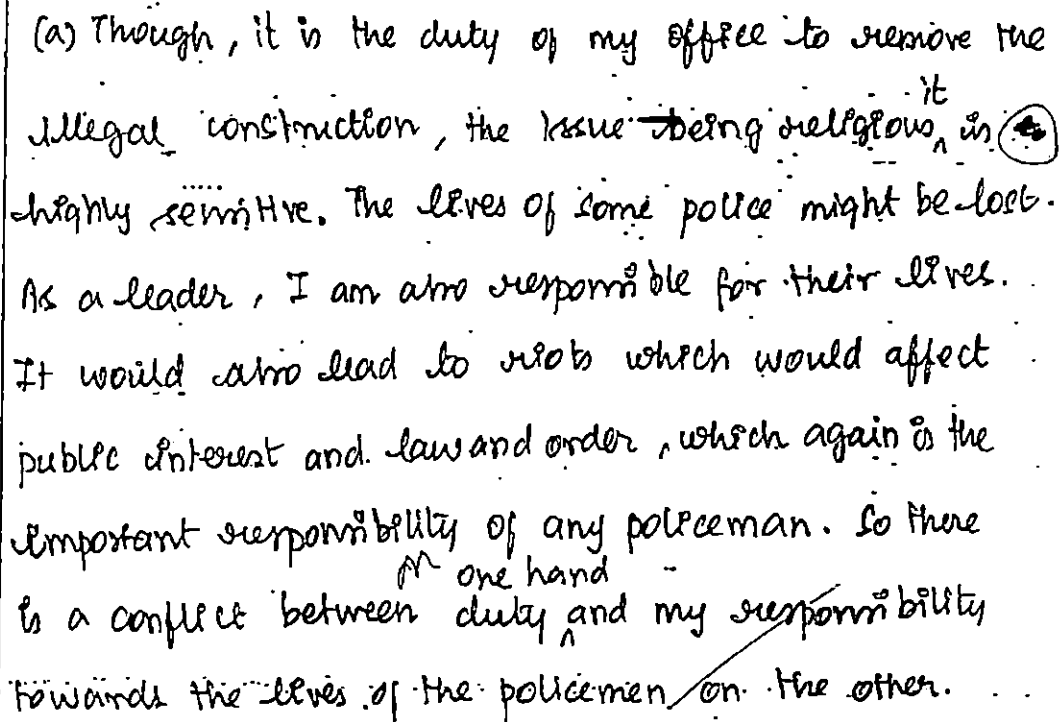 (a) Though, it is the duty of my office to remove the
illegal construction, the issue being religious, it is
highly sensitive. The lives of some police might be lost.
As a leader, I am also responsible for their lives.
It would also lead to riots which would affect
public interest and law and order, which again is the
important responsibility of any policeman. So there
is a conflict between duty on one hand and my responsibility
towards the lives of the policemen on the other.